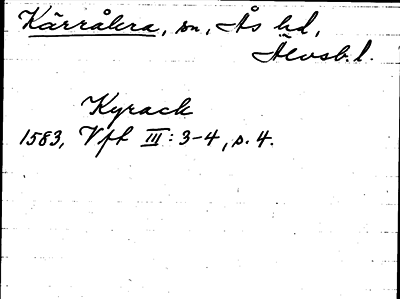 Kärråkra, sn, Ås hd,
Älvsb. l.
Kyrack
1583, Vfl III: 3-4, s. 4.